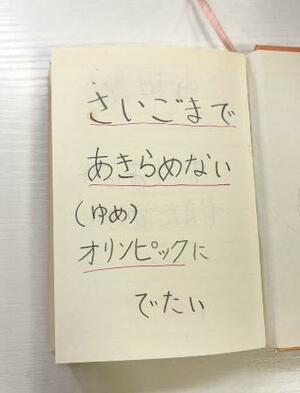 さいごまで
あきらめない
(ゆめ)
オリンピックに
でたい